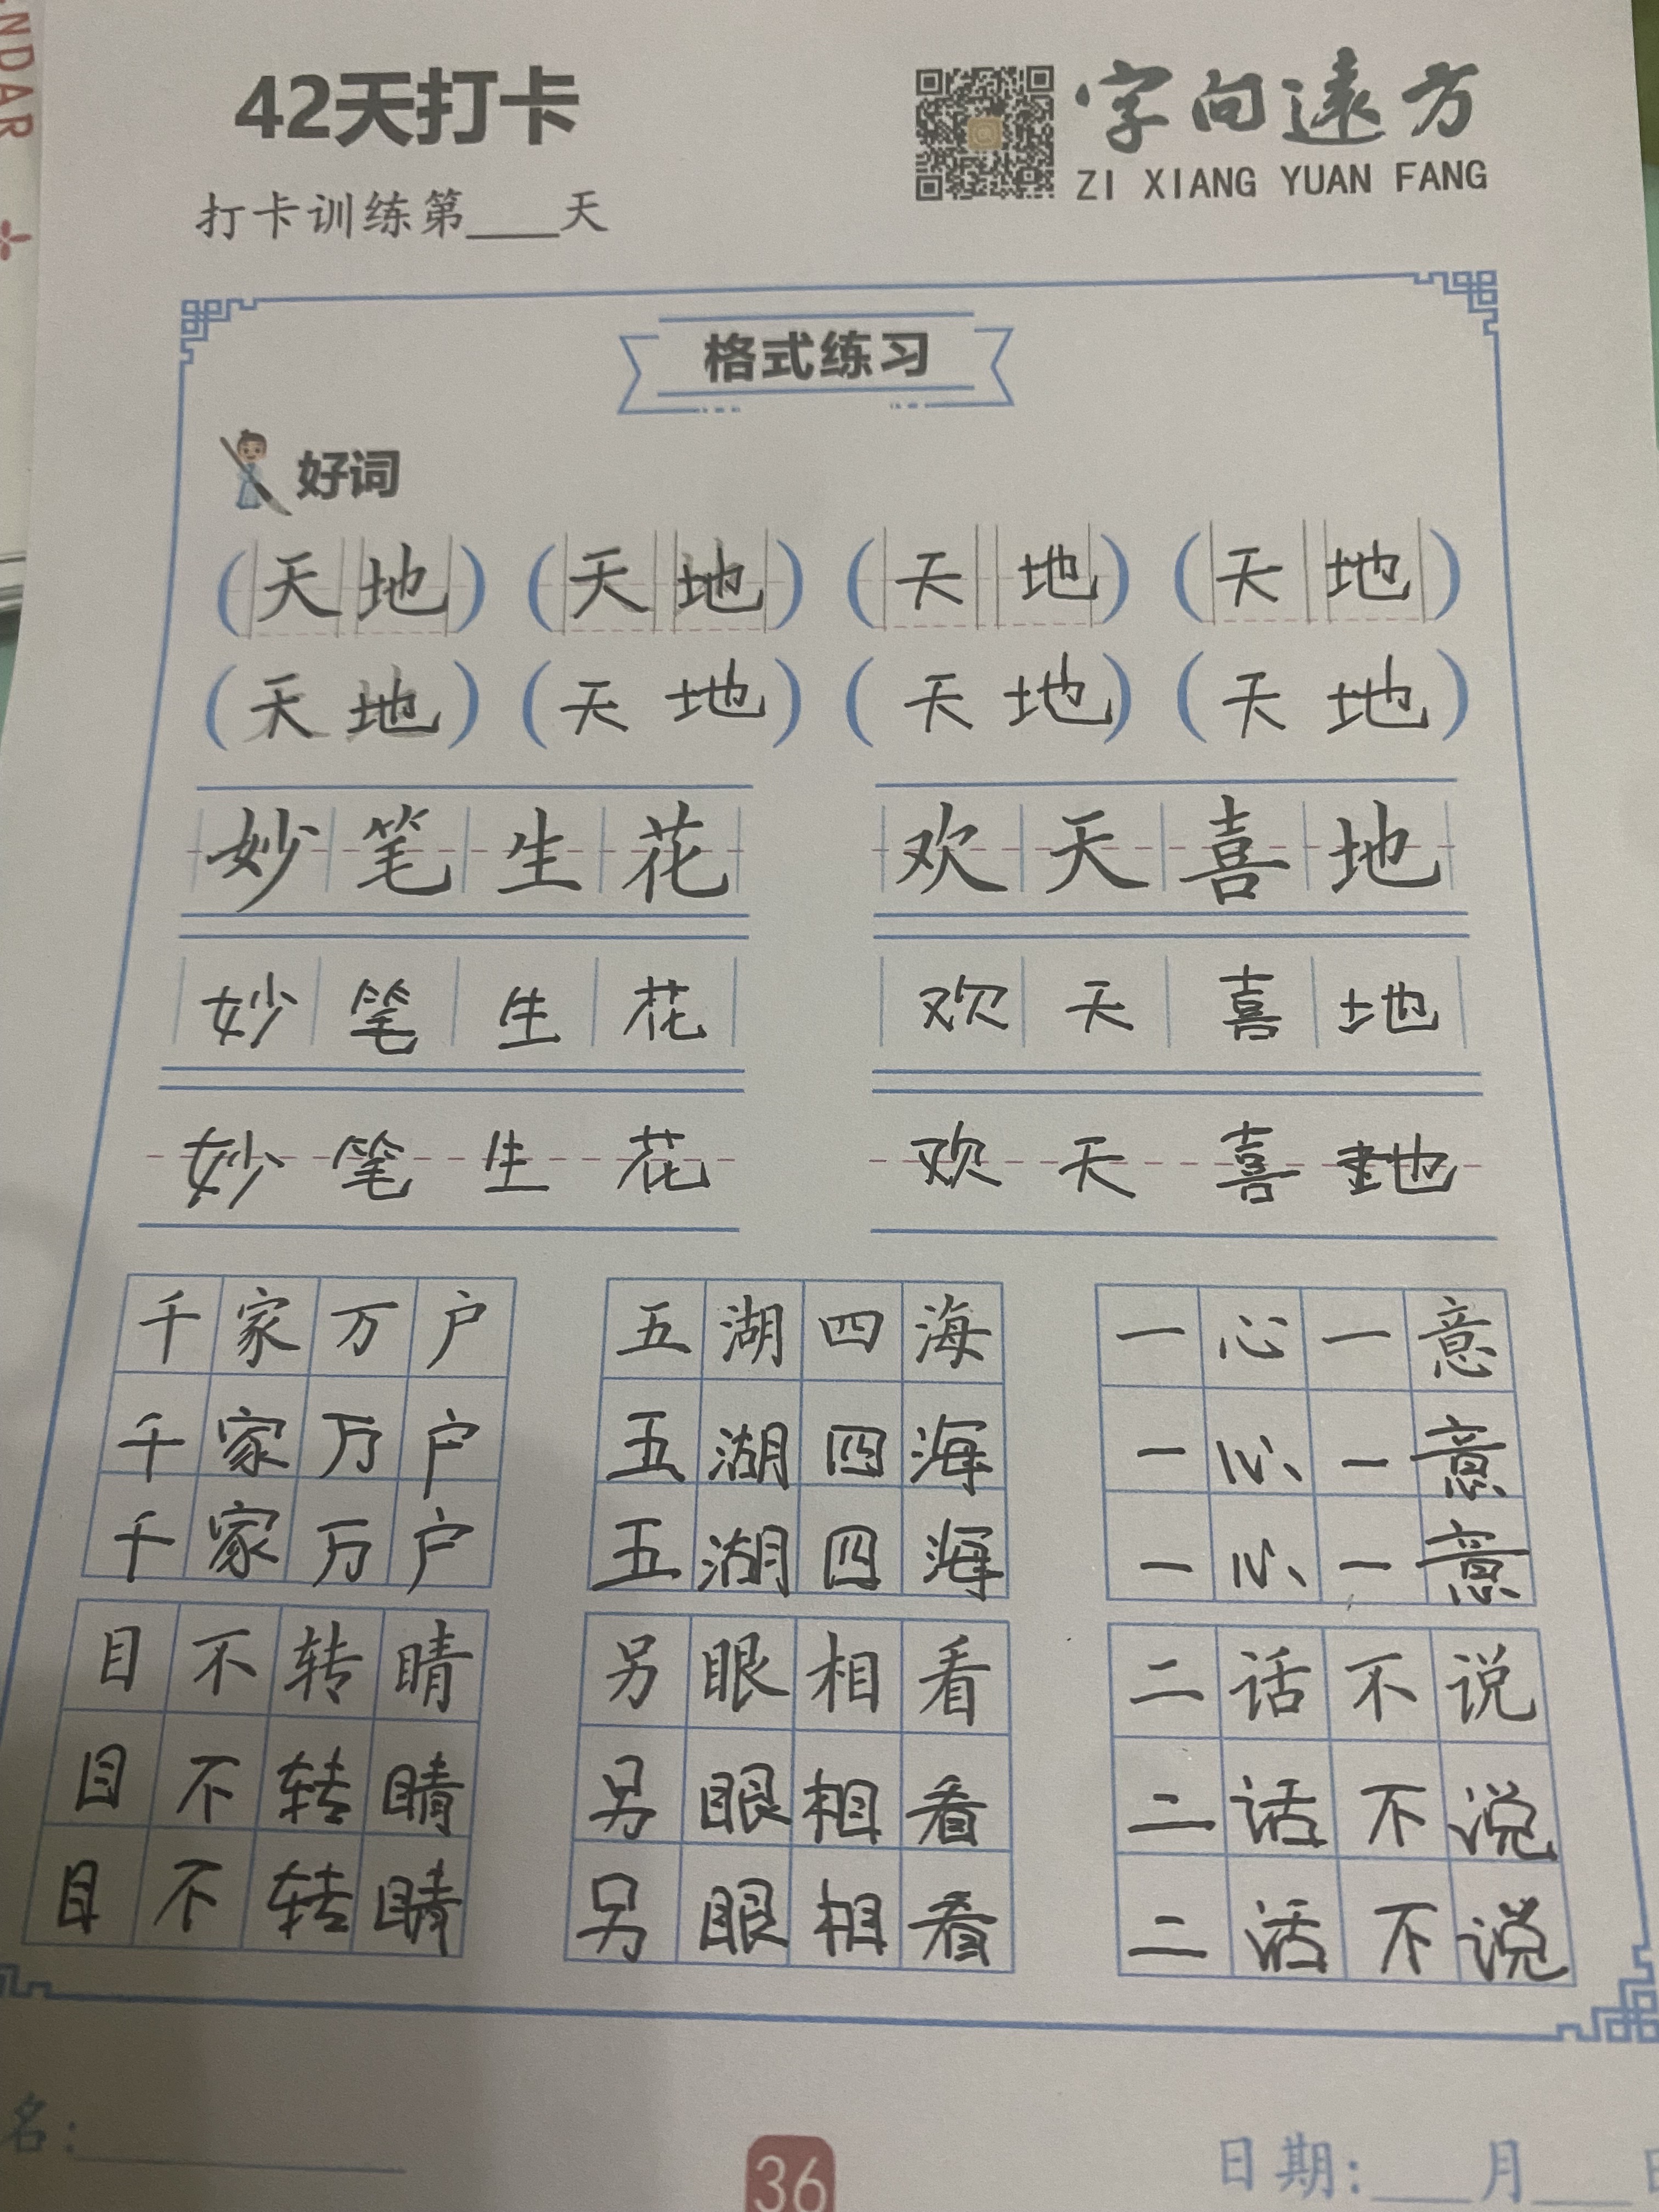 NDAR
42天打卡
字向遠方
ZI XIANG YUAN FANG
打卡训练第____天
格式练习
好词
(天地) (天地) (天地) (天地)
(天地) (天地) (天地) (天地)
妙笔生花 欢天喜地
妙笔生花 欢天喜地
妙笔生花 欢天喜地
千家万户 五湖四海 一心一意
千家万户 五湖四海 一心一意
千家万户 五湖四海 一心一意
目不转睛 另眼相看 二话不说
目不转睛 另眼相看 二话不说
目不转睛 另眼相看 二话不说
名:____ 日期:___月___日
36